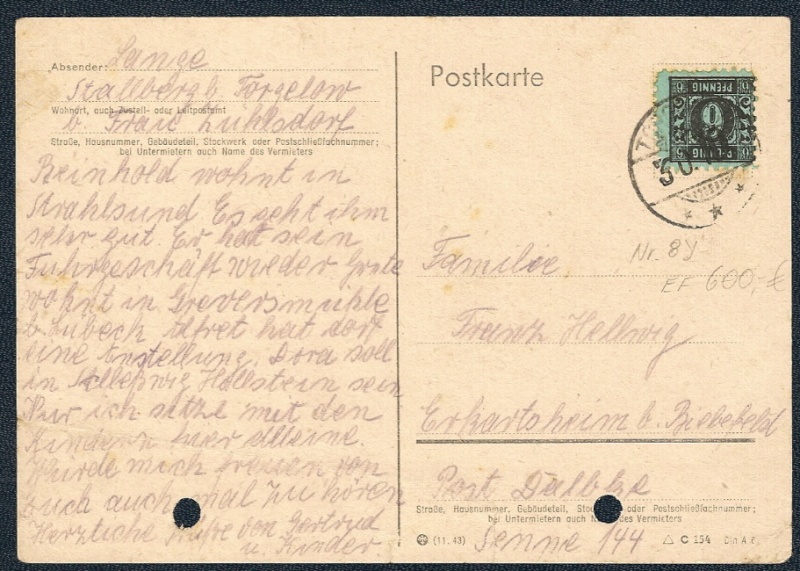 Absender: Lange
Stallberg b. Torgelow
Wohnort, auch Zustell- oder Leitpostamt
b Frau Zühlsdorf
Straße, Hausnummer, Gebäudeteil, Stockwerk oder Postschließfachnummer;
bei Untermietern auch Name des Vermieters
Reinhold wohnt in
Strahlsund Es geht ihm
sehr gut. Er hat sein
Fuhrgeschäft wieder. Grete
wohnt in Greversmühle
b. Lübeck Alfret hat dort
eine Enstellung. Dora soll
in Schleßwig Hollstein sein
Nur ich sitze mit den
Kindern hier alleine.
Würde mich freuen von
Euch auch mal zu hören
Herzliche Grüße von Gertrud
u. Kinder
Postkarte
PFENNIG
6
Nr. 8y
EF 600,-€
Familie
Franz Hellwig
Eckartsheim b. Bielefeld
Post Dalbke
Straße, Hausnummer, Gebäudeteil, Stockwerk oder Postschließfachnummer;
bei Untermietern auch Name des Vermieters
Senne 144
(11.43)
C 154 Din A 6